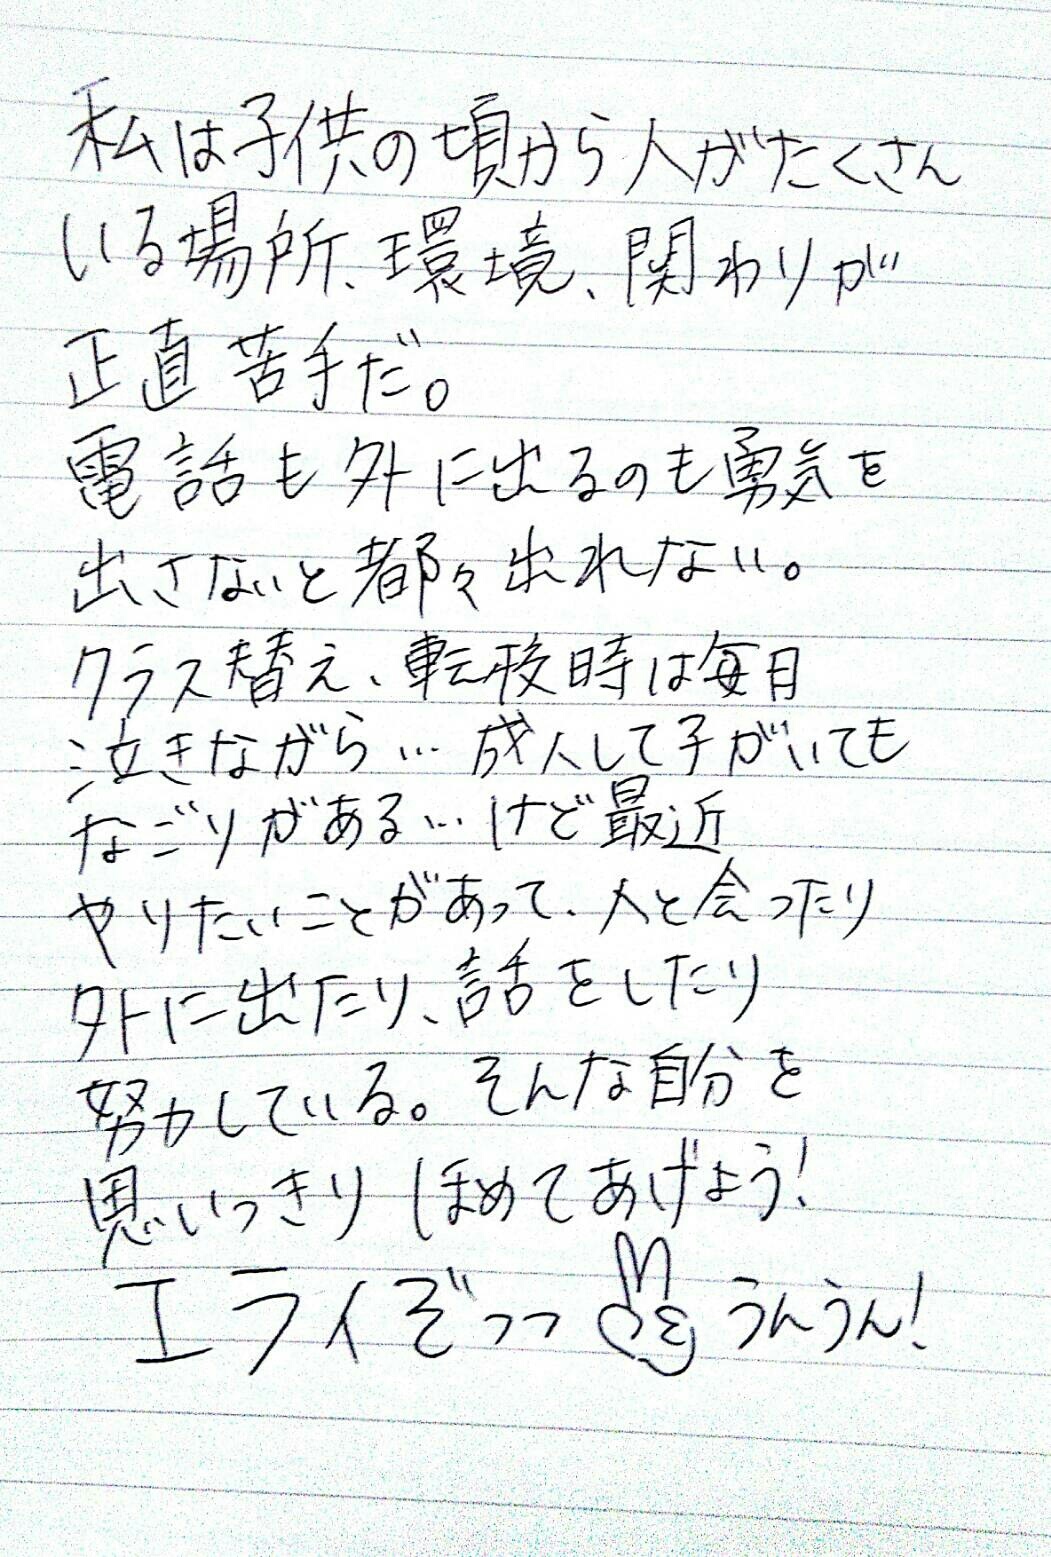 私は子供の頃から人がたくさん
いる場所、環境、関わりが
正直苦手だ。
電話も外に出るのも勇気を
出さないと都々出れない。
クラス替え、転校時は毎月
泣きながら… 成人して子がいても
なごりがある… けど最近
やりたいことがあって、人と会ったり
外に出たり、話をしたり
努力している。そんな自分を
思いっきりほめてあげよう!
エライぞっっ うんうん!